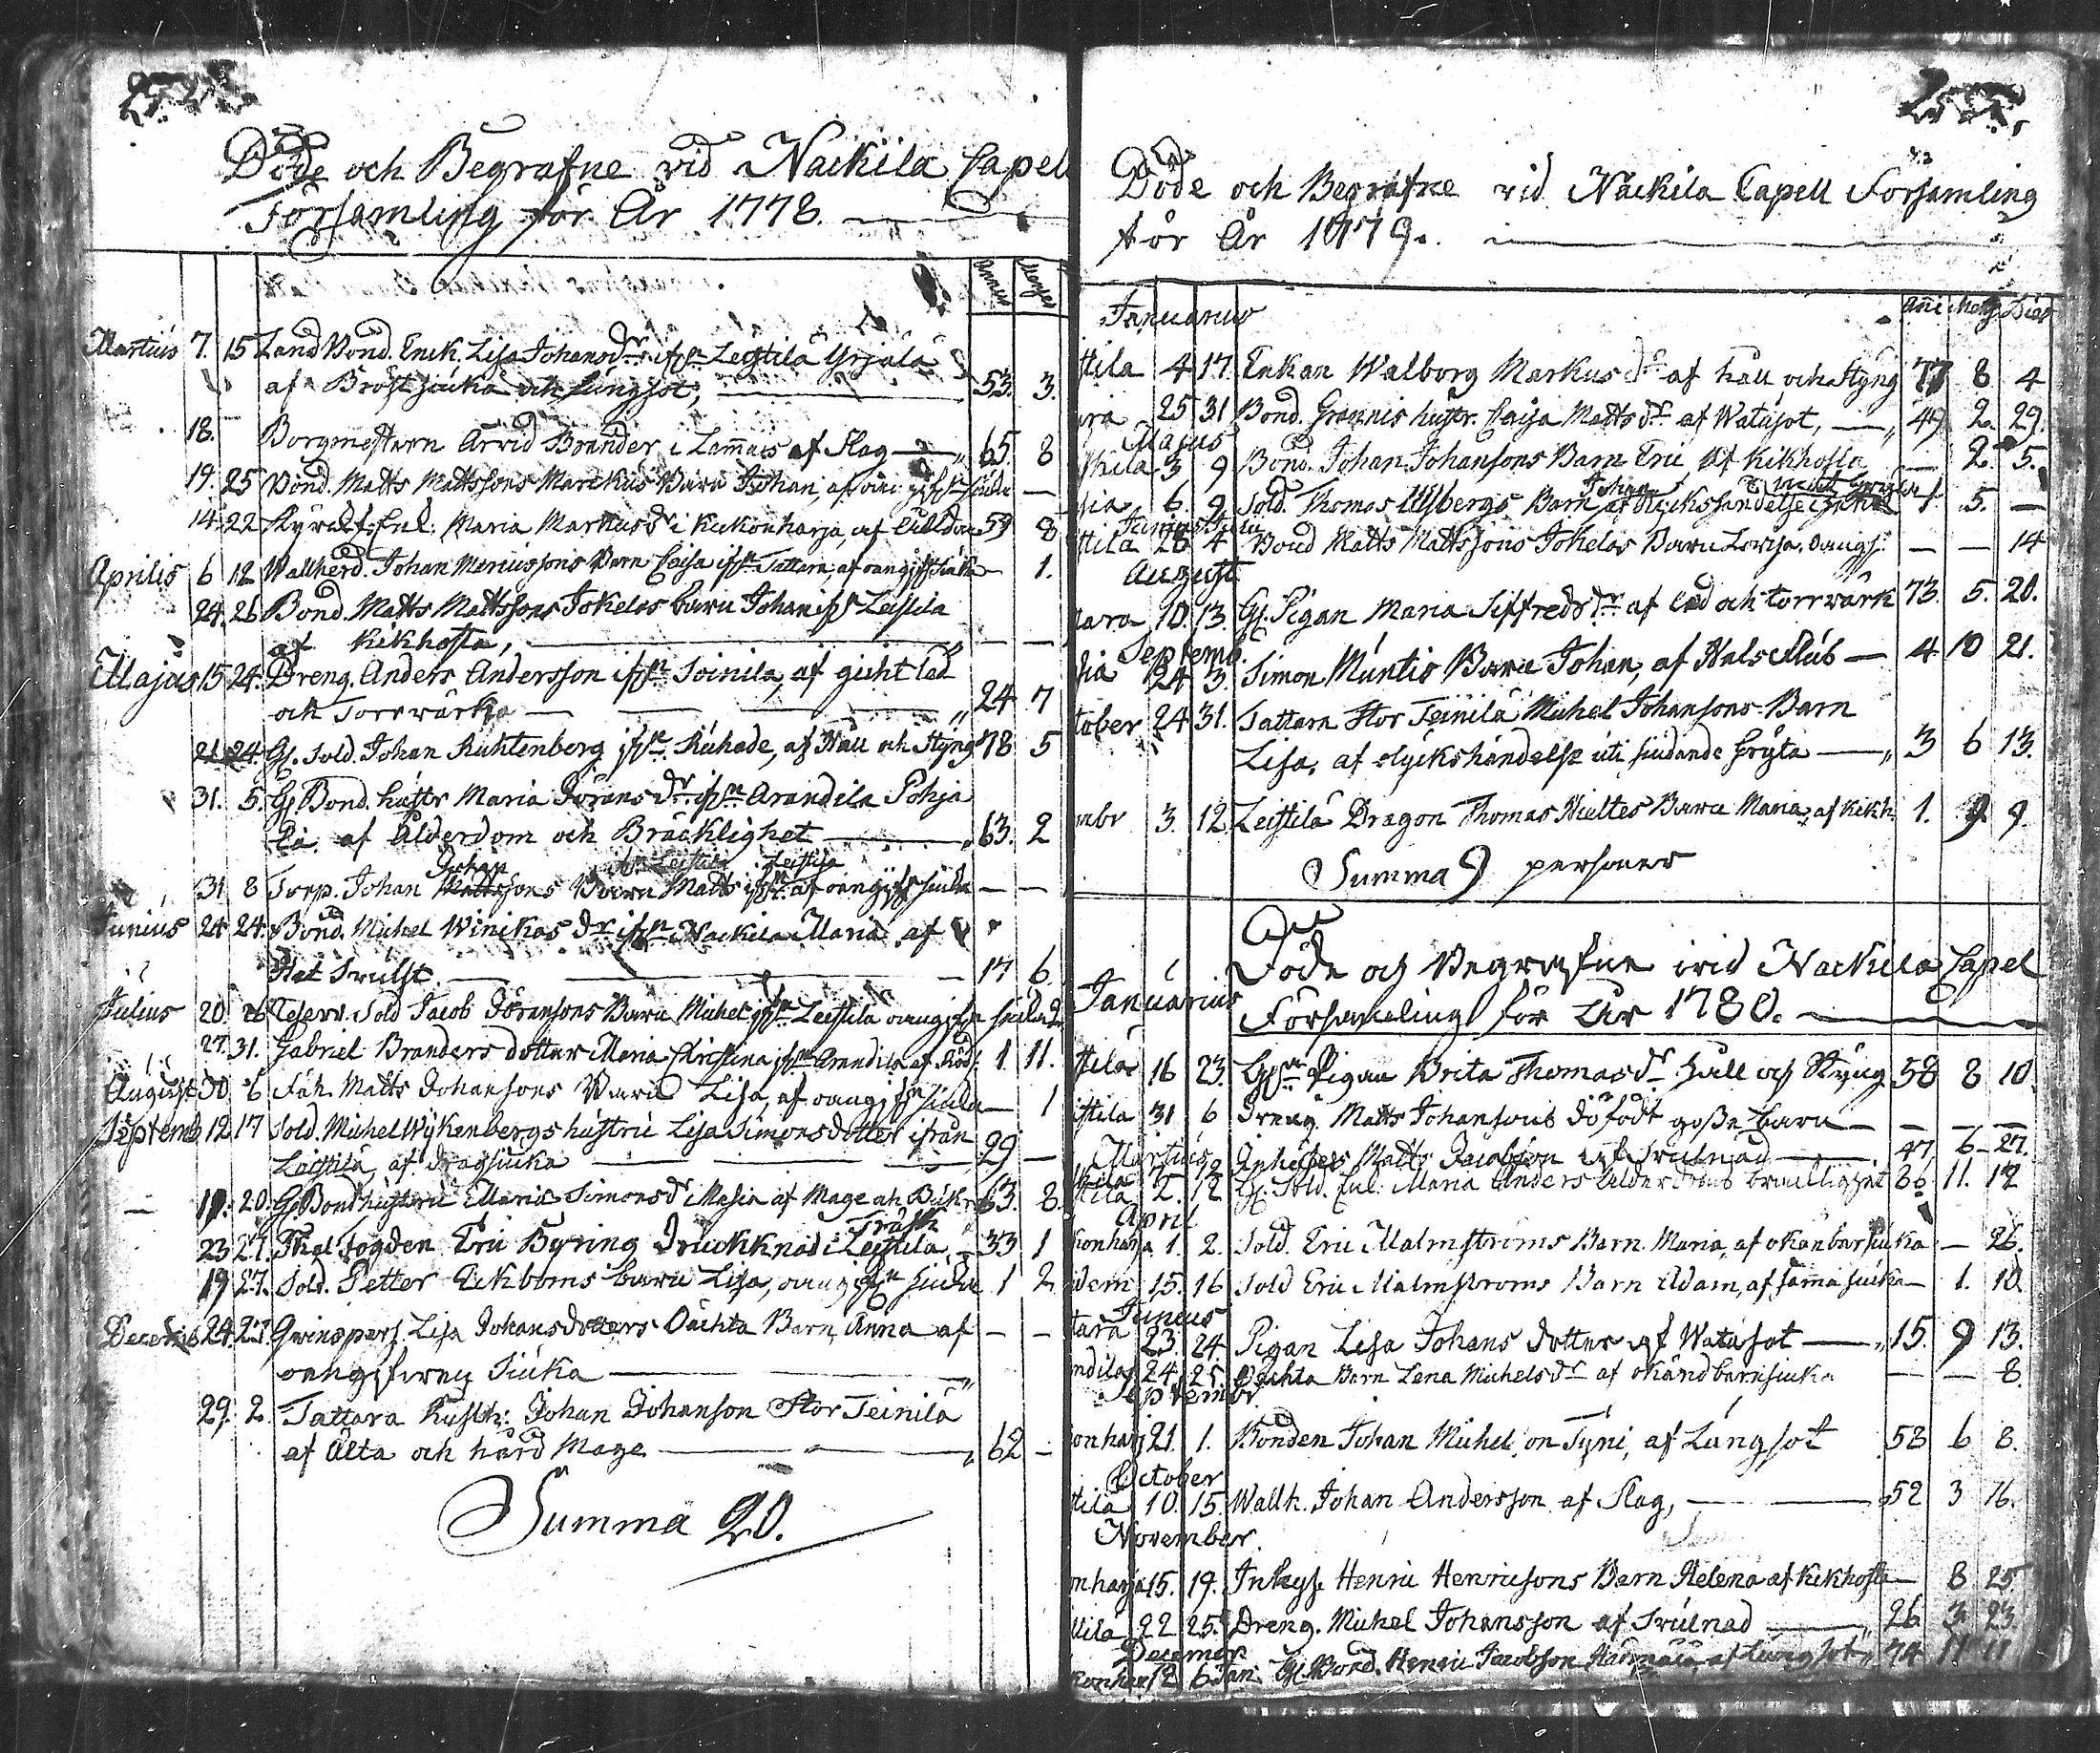 Döde och Begrafne vid Nackila Capell
Församling för År 1778.
Annus Menses
Martius 7. 15 Land Bond. Enck. Lisa Johansdr ifrn Leistilä Yrjälä
af Bröstsiuka och lungsot, 53. 3.
18. Borgmestarn Arvid Brander i Lammais af Slag 65. 8
19. 25 Bond. Matts Mattssons Barn Johan, af
14. 22 Enk. Maria Markusdr i Kukonharja, af 59 8
Aprilis 6 12 Wallherd. Johan Barn Caisa ifrn Tattara, af oangifn siuka 1.
24. 26 Bond. Matts Mattssons Jokelas barn Johan ifrn Leistila
af kekhosta,
Majus 15 24. Dreng. Anders Andersson ifrn Soinila, af gicht led
och Torrvärk 24 7
21 24. Gl. Sold. Johan Ruhtenberg ifrn af Håll och Styng 78 5
31. 5. Gl. Bond. hustr Maria Jöransdr ifrn Arandila Pohja
af Ålderdom och Bräcklighet 63. 2
Johan Leistila
31 8 Torp. Johan Barn Matts ifrn af oangifn siuka
Junius 24 24. Bond. Michel Winikas dr ifrn Nackila Maria af
Het Swulst 17 6.
Julius 20. 26 Sold Jacob Göransons Barn Michel ifrn Leistila oangifn siukd.
27. 31. Gabriel Branders dotter Maria Christina ifrn Arandila af Röds. 1 11.
August 30 6 Matts Johansons Barn Lisa, af oangifn siuka 1
Septemb 12. 17 Sold. Michel Wikenbergs hustru Lisa Simonsdotter ifrån
Leistila, af Bragsiuka 29
19. 20. Gl. Bond hustru Maria Simonsdr Masia af Mage och Bukref 63. 8.
Träsk
23 27. Fogden Eric Byring Druckknad i Leistila 33 1
19 27. Sold. Petter Eckboms barn Lisa, oangifn siuka 1 2
Decembr 24. 27. Lisa Johansdotters Oächta Barn, Anna af
oangifven Siuka
29. 2. Tattara Rusth: Johan Johanson Stor Teinilä
af Älta och hård Mage 62
Summa 20.
Döde och Begrafne vid Näckila Capell Församling
för År 1779.
Januarius Anni Mens Dies
stila 4 17. Enkan Walborg Markusdr af håll och Styng 77 8 4
ara 25 31 Bond. Grannis hustr. Caisa Matts dr. af Watusot, 49 2. 29.
Majus
kila 3 9 Bond. Johan Johansons Barn Eric af Kikhosta 2. 5.
Johan
sia 6. 9 Sold. Thomas Ulbergs Barn af olyckshändelse 1. 5.
Junius Julii
stila 28 4 Bond Matts Mattssons Jokelas Barn Lovisa. oangf. 14
August
tara 10. 13. Gl. Pigan Maria Siffredsdr. af led och torrvärk 73. 5. 20.
Septemb.
sia 24 3. Simon Muntis Barn Johan, af Halsfluss 4. 10 21.
tober 24 31. Tattara Stor Teinilä Michel Johansons Barn
Lisa, af olyckshändelse uti siudande gryta 3 6 13.
mbr 3. 12. Leistilä Dragon Thomas Barn Maria, af kikh. 1. 9 9.
Summa 9 personer
Döde och Begrafne vid Nackila Capel
Januarius Församling för År 1780.
stila 16 23. Gl. Pigan Brita Thomasdr Håll och Styng 58 8 10
istila 31 6 Dreng Matts Johansons dödfödt gosse barn
Martius Inhyses Matts Jacobson af Swulnad 47. 6 27.
stila 2. 12 Gl. Sold. Enk. Maria Anders Ålderdoms bräcklighet 86 11. 12
April
konharja 1. 2. Sold. Eric Malmströms Barn. Maria, af okänbar siuka 26.
idem 15. 16 Sold Eric Malmströms Barn Adam, af samma siuka 1. 10
Junius
tara 23. 24. Pigan Lisa Johans dotter af Watusot 15. 9 13.
ndila 24. 25. Oächta Barn Lena Michelsdr af okänd barnsiuka 8.
Septembr.
onharj 21. 1. Bonden Johan Michelson Tyni, af Lungsot 58 6 8.
October
tila 10. 15. Wallh. Johan Andersson af Slag, 52 3 16.
November.
onharja 15. 19. Inhys. Henric Henricsons Barn Helena af Kikhosta 8 25.
tilä 22 25. Dreng. Michel Johansson af Swulnad 26 3 23.
Decemer
konhar 12 6 Jan. Gl. Bond. Henric Jacobson af Lungsot 74 11 11